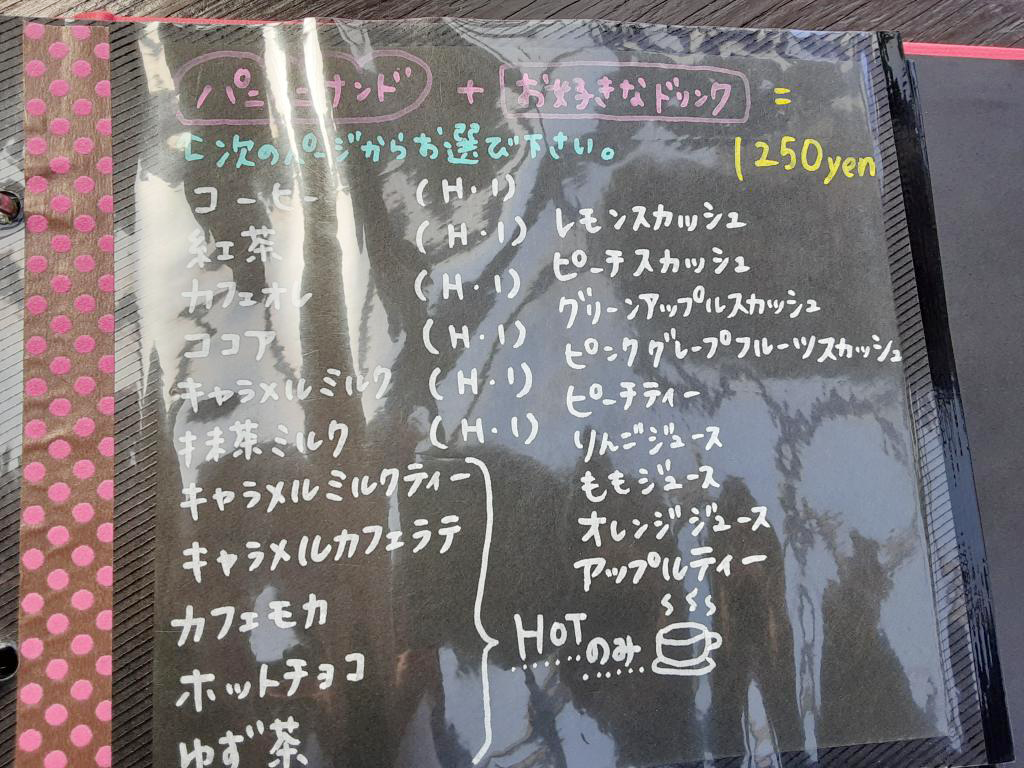 パニーニサンド + お好きなドリンク =
└次のページからお選び下さい。
1250yen
コーヒー (H・I)
紅茶 (H・I)
カフェオレ (H・I)
ココア (H・I)
キャラメルミルク (H・I)
抹茶ミルク (H・I)
キャラメルミルクティー
キャラメルカフェラテ
カフェモカ
ホットチョコ
ゆず茶
HOTのみ
レモンスカッシュ
ピーチスカッシュ
グリーンアップルスカッシュ
ピンクグレープフルーツスカッシュ
ピーチティー
りんごジュース
ももジュース
オレンジジュース
アップルティー